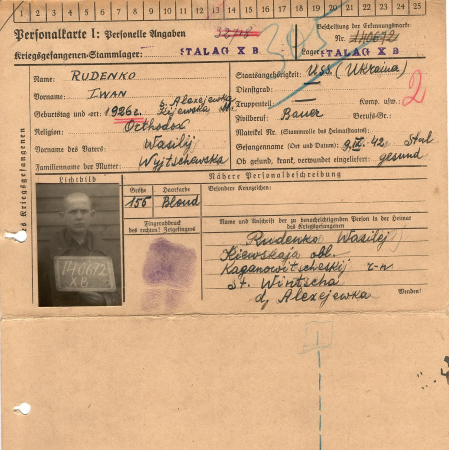 1 2 3 4 5 6 7 8 9 10 11 12 13 14 15 16 17 18 19 20 21 22 23 24 25
Personalkarte I: Personelle Angaben
Beschriftung der Erkennungsmarke
Nr. 140672
Kriegsgefangenen-Stammlager: STALAG X B
Lager: STALAG X B
Name: RUDENKO
Staatsangehörigkeit: (Ukraina)
Vorname: IWAN
Dienstgrad: —
Geburtstag und -ort: 1926 s. Alexejewka
Truppenteil: — Komp. usw.: 2
Religion: Orthodox
Zivilberuf: Bauer Berufs-Gr.:
Vorname des Vaters: Wasilij
Matrikel Nr. (Stammrolle des Heimatstaates):
Gefangennahme (Ort und Datum): 42
Familienname der Mutter:
Ob gesund, krank, verwundet eingeliefert: gesund
Lichtbild
Nähere Personalbeschreibung
Größe Haarfarbe
Besondere Kennzeichen:
155 Blond
Fingerabdruck
des rechten Zeigefingers
Name und Anschrift der zu benachrichtigenden Person in der Heimat
des Kriegsgefangenen
Rudenko Wasilej
Kiewskaja obl.
Kaganowitscheskij r-n
St. Wintscha
d. Alexejewka
Wenden!
140672
X B